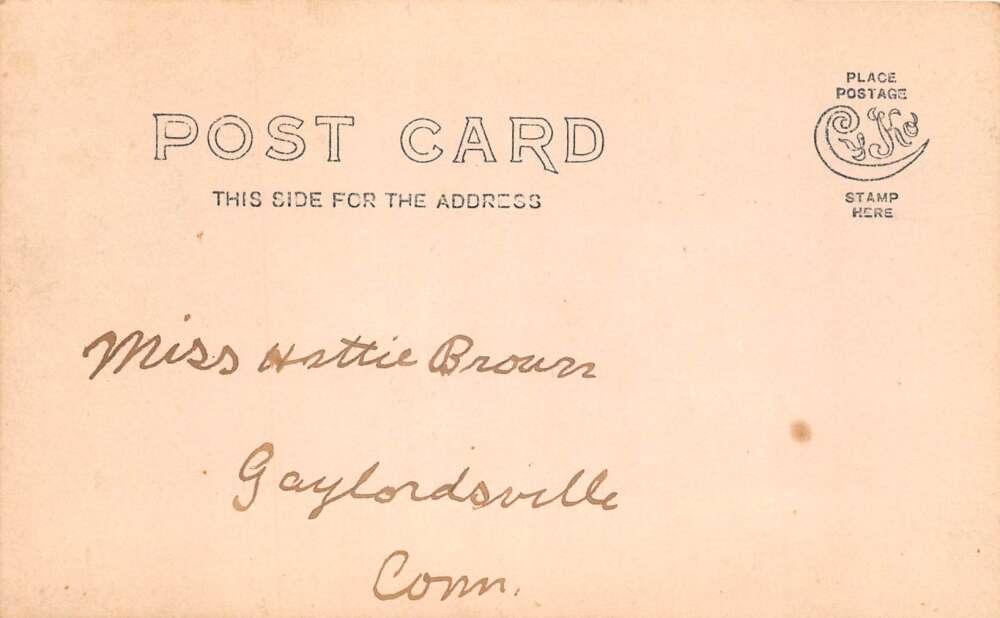 POST CARD
THIS SIDE FOR THE ADDRESS
PLACE
POSTAGE
CyKo
STAMP
HERE
Miss Hattie Brown
Gaylordsville
Conn.